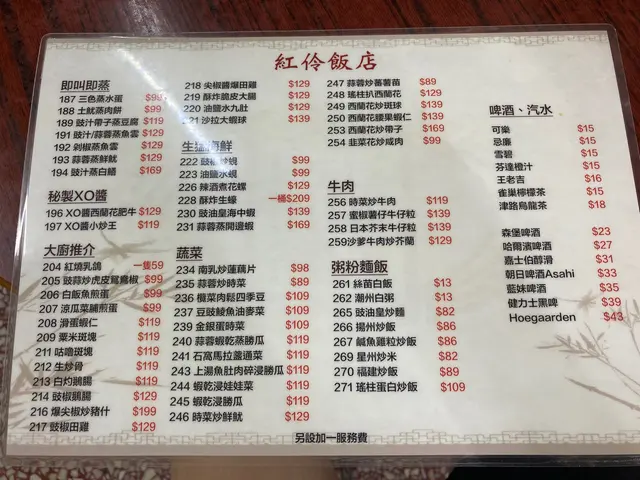 紅伶飯店
即叫即蒸
187 三色蒸水蛋 $99
188 土魷蒸肉餅 $99
189 豉汁帶子蒸豆腐 $119
191 豉汁/蒜蓉蒸魚雲 $129
192 剁椒蒸魚雲 $129
193 蒜蓉蒸鮮魷 $129
194 豉汁蒸白鱔 $169
秘製XO醬
196 XO醬西蘭花肥牛 $129
197 XO醬小炒王 $119
大廚推介
204 紅燒乳鴿 一隻59
205 豉蒜炒虎皮鴛鴦椒 $99
206 白飯魚煎蛋 $99
207 涼瓜菜脯煎蛋 $99
208 滑蛋蝦仁 $119
209 粟米斑塊 $119
211 咕嚕斑塊 $119
212 生炒骨 $119
213 白灼鵝腸 $119
214 豉椒鵝腸 $129
216 爆尖椒炒豬什 $199
217 豉椒田雞 $129
218 尖椒醬爆田雞 $129
219 酥炸脆皮大腸 $129
220 油鹽水九肚 $129
221 沙拉大蝦球 $139
生猛海鮮
222 豉椒炒蜆 $99
223 油鹽水蜆 $99
226 辣酒煮花螺 $129
228 酥炸生蠔 一桶$209
230 豉油皇海中蝦 $139
231 蒜蓉蒸開邊蝦 $169
蔬菜
234 南乳炒蓮藕片 $98
235 蒜蓉炒時菜 $89
236 欖菜肉鬆四季豆 $109
237 豆豉鯪魚油麥菜 $109
239 金銀蛋時菜 $109
240 蒜蓉蝦乾蒸勝瓜 $119
241 石窩馬拉盞通菜 $119
243 上湯魚肚肉碎浸勝瓜 $119
244 蝦乾浸娃娃菜 $119
245 蝦乾浸勝瓜 $119
246 時菜炒鮮魷 $129
247 蒜蓉炒蕃薯苗 $89
248 瑤柱扒西蘭花 $129
249 西蘭花炒斑球 $139
250 西蘭花腰果蝦仁 $139
253 西蘭花炒帶子 $169
254 韭菜花炒咸肉 $99
牛肉
256 時菜炒牛肉 $119
257 蜜椒薯仔牛仔粒 $139
258 日本芥末牛仔粒 $139
259沙爹牛肉炒芥蘭 $129
粥粉麵飯
261 絲苗白飯 $13
262 潮州白粥 $13
265 豉油皇炒麵 $82
266 揚州炒飯 $86
267 鹹魚雞粒炒飯 $86
269 星州炒米 $82
270 福建炒飯 $89
271 瑤柱蛋白炒飯 $109
啤酒、汽水
可樂 $15
忌廉 $15
雪碧 $15
芬達橙汁 $15
王老吉 $16
雀巢檸檬茶 $15
津路烏龍茶 $18
森堡啤酒 $23
哈爾濱啤酒 $27
嘉士伯醇滑 $31
朝日啤酒Asahi $33
藍妹啤酒 $35
健力士黑啤 $39
Hoegaarden $43
另設加一服務費